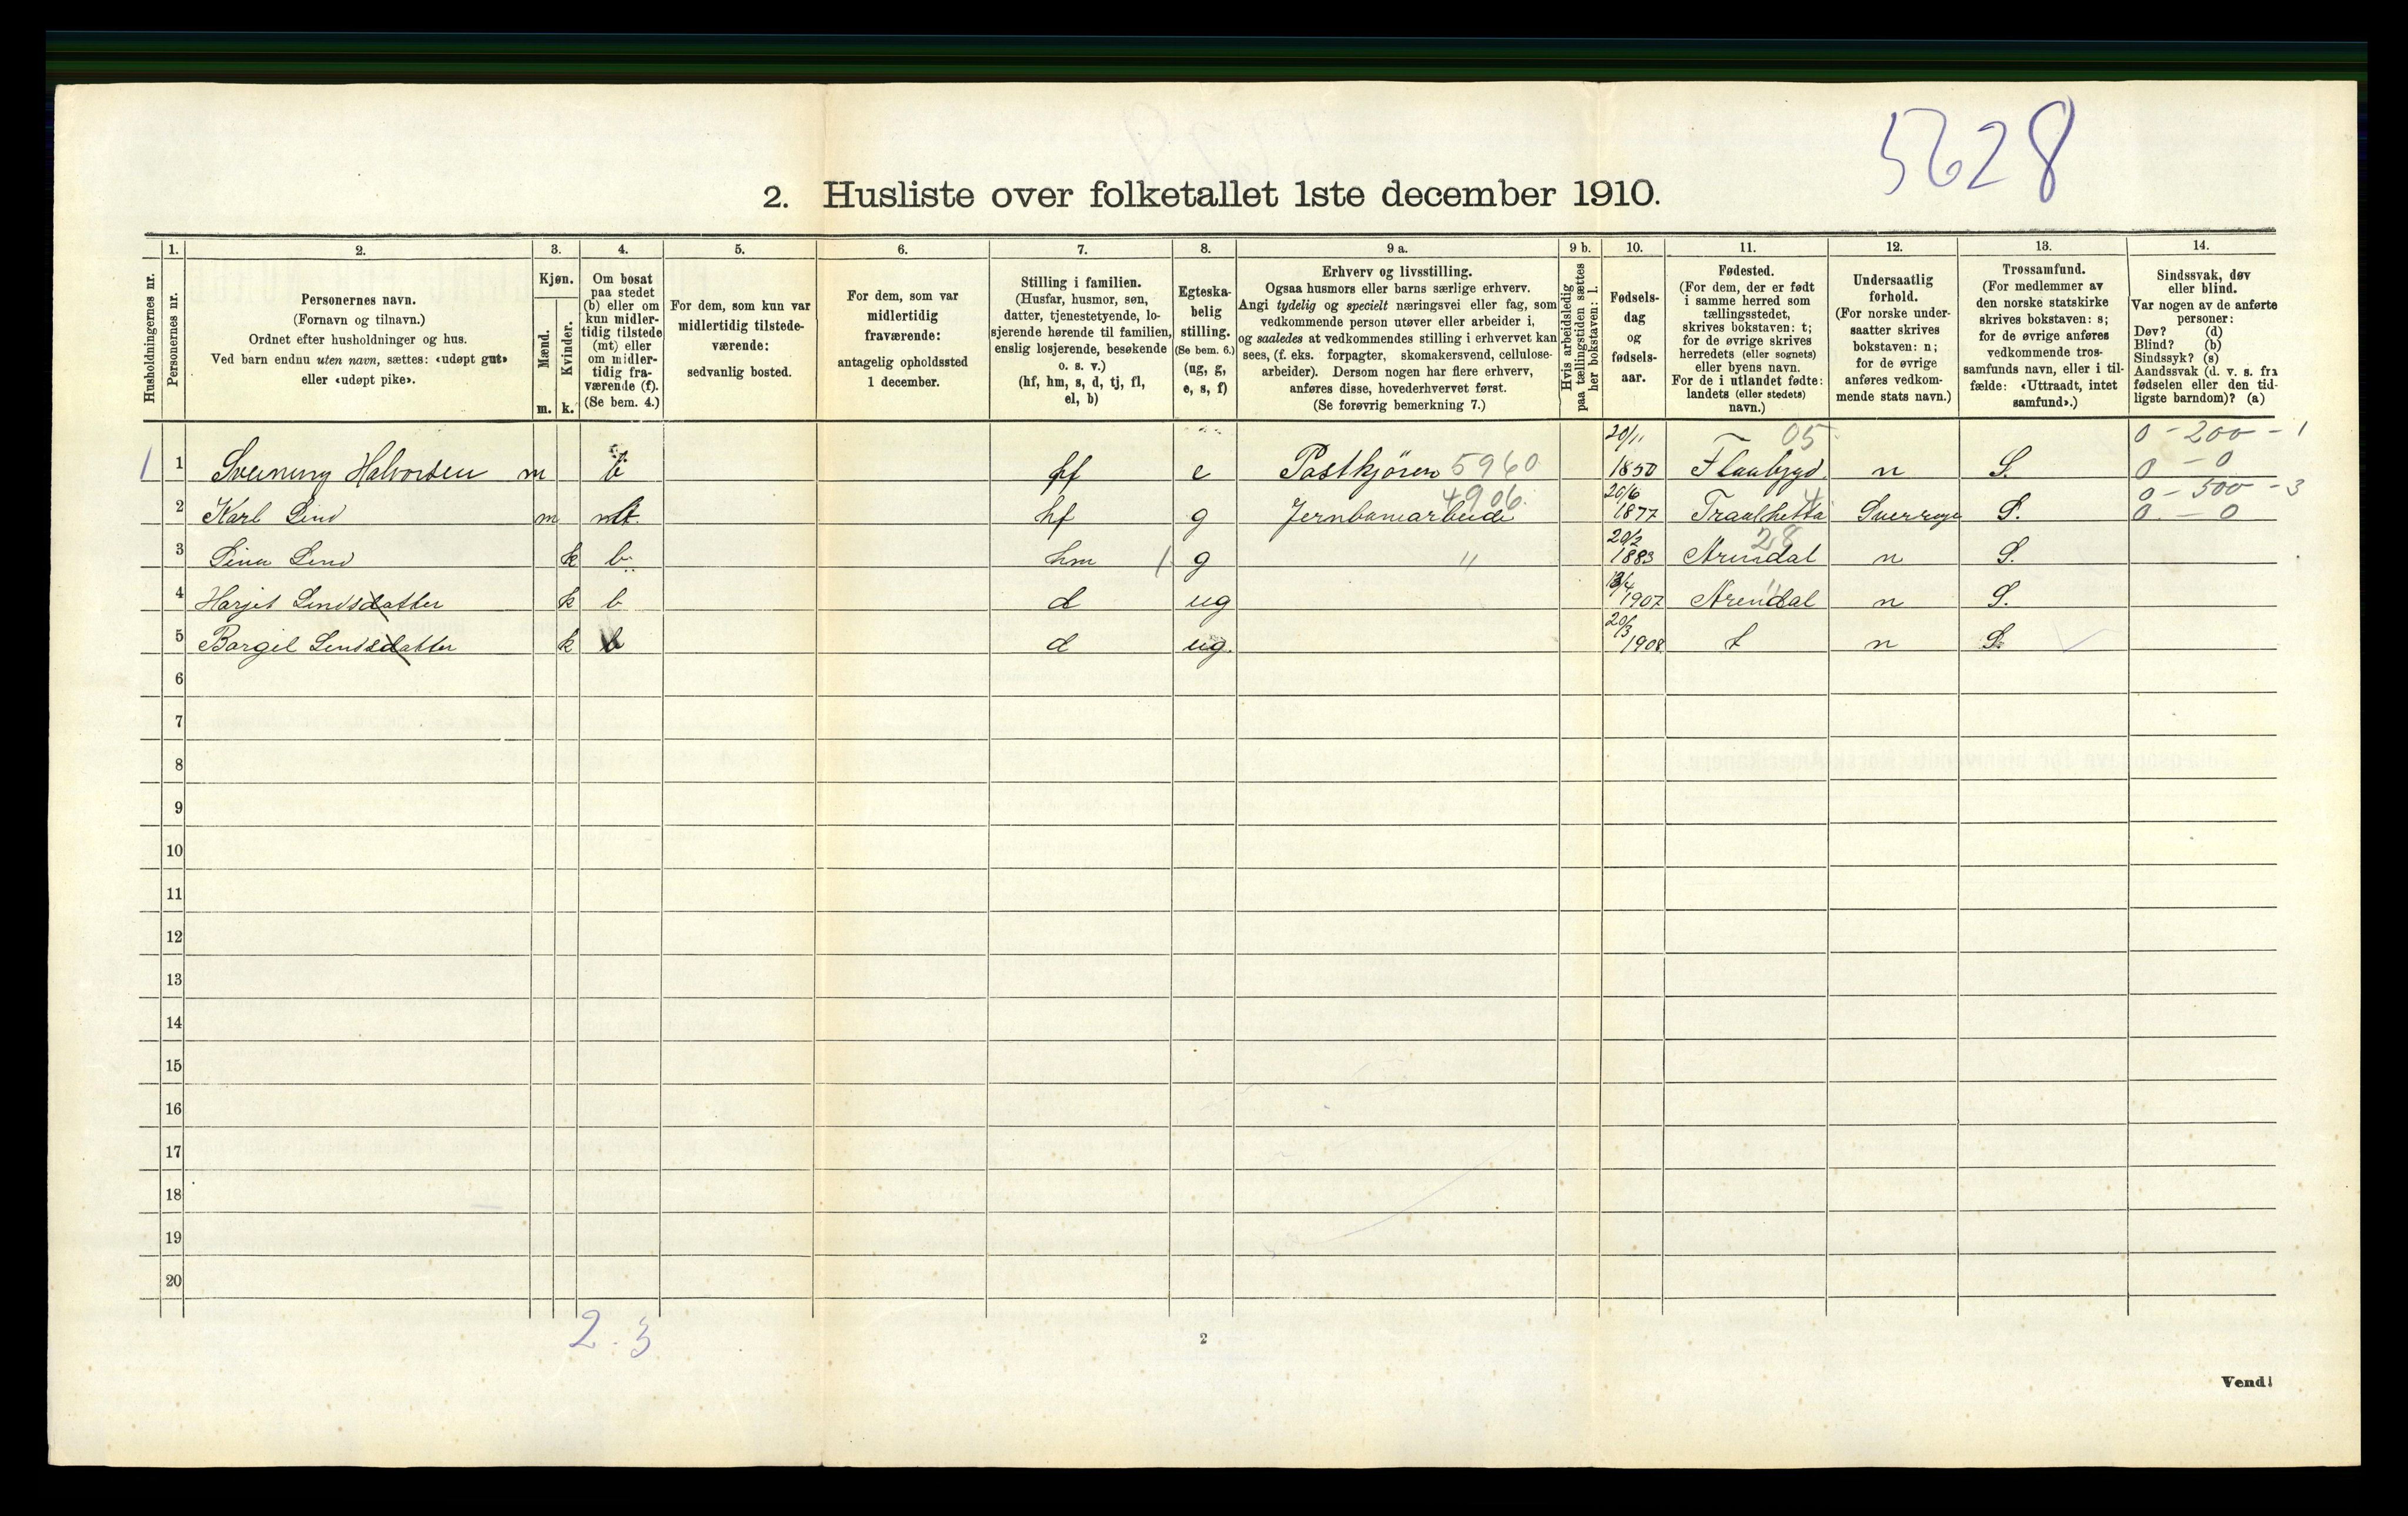 5628
2. Husliste over folketallet 1ste december 1910.
Husholdningernes nr.
1.
Personernes nr.
2.
Personernes navn.
(Fornavn og tilnavn.)
Ordnet efter husholdninger og hus.
Ved barn endnu uten navn, sættes: «udøpt gut»
eller «udøpt pike».
3.
Kjøn.
Mænd.
Kvinder.
m. k.
4.
Om bosat
paa stedet
(b) eller om
kun midler-
tidig tilstede
(mt) eller
om midler-
tidig fra-
værende (f).
(Se bem. 4.)
5.
For dem, som kun var
midlertidig tilstede-
værende:
sedvanlig bosted.
6.
For dem, som var
midlertidig
fraværende:
antagelig opholdssted
1 december.
7.
Stilling i familien.
(Husfar, husmor, søn,
datter, tjenestetyende, lo-
sjerende hørende til familien,
enslig losjerende, besøkende
o. s. v.)
(hf, hm, s, d, tj, fl,
el, b)
8.
Egteska-
belig
stilling.
(Se bem. 6.)
(ug, g,
e, s, f)
9 a.
Erhverv og livsstilling.
Ogsaa husmors eller barns særlige erhverv.
Angi tydelig og specielt næringsvei eller fag, som
vedkommende person utøver eller arbeider i,
og saaledes at vedkommendes stilling i erhvervet kan
sees, (f. eks. forpagter, skomakersvend, cellulose-
arbeider). Dersom nogen har flere erhverv,
anføres disse, hovederhvervet først.
(Se forøvrig bemerkning 7.)
9 b.
Hvis arbeidsledig
paa tællingstiden sættes
her bokstaven: l.
10.
Fødsels-
dag
og
fødsels-
aar.
11.
Fødested.
(For dem, der er født
i samme herred som
tællingsstedet,
skrives bokstaven: t;
for de øvrige skrives
herredets (eller sognets)
eller byens navn.
For de i utlandet fødte:
landets (eller stedets)
navn.)
12.
Undersaatlig
forhold.
(For norske under-
saatter skrives
bokstaven: n;
for de øvrige
anføres vedkom-
mende stats navn.)
13.
Trossamfund.
(For medlemmer av
den norske statskirke
skrives bokstaven: s;
for de øvrige anføres
vedkommende tros-
samfunds navn, eller i til-
fælde: «Uttraadt, intet
samfund».)
14.
Sindssvak, døv
eller blind.
Var nogen av de anførte
personer:
Døv? (d)
Blind? (b)
Sindssyk? (s)
Aandssvak (d. v. s. fra
fødselen eller den tid-
ligste barndom)? (a)
20/11 05 0 - 200 - 1
1 1 Sveinung Halvorsen m b hf e Postkjörer 5960 1850 Flaabygd n S. 0 - 0
20/6 4906 4 0 - 500 - 3
2 Karl Lind m mt. hf g Jernbanearbeide 1877 Traalhetta Sverrige S. 0 - 0
20/2 28
3 Lina Lind k b hm 1 g " 1883 Arendal n S.
4 Harjet Lindsdatter k b d ug 1907 Arendal n S.
20/3
5 Borgil Lindsdatter k b d ug. 1908 t n S.
6
7
8
9
10
11
12
13
14
15
16
17
18
19
20
2. 3
2
Vend!